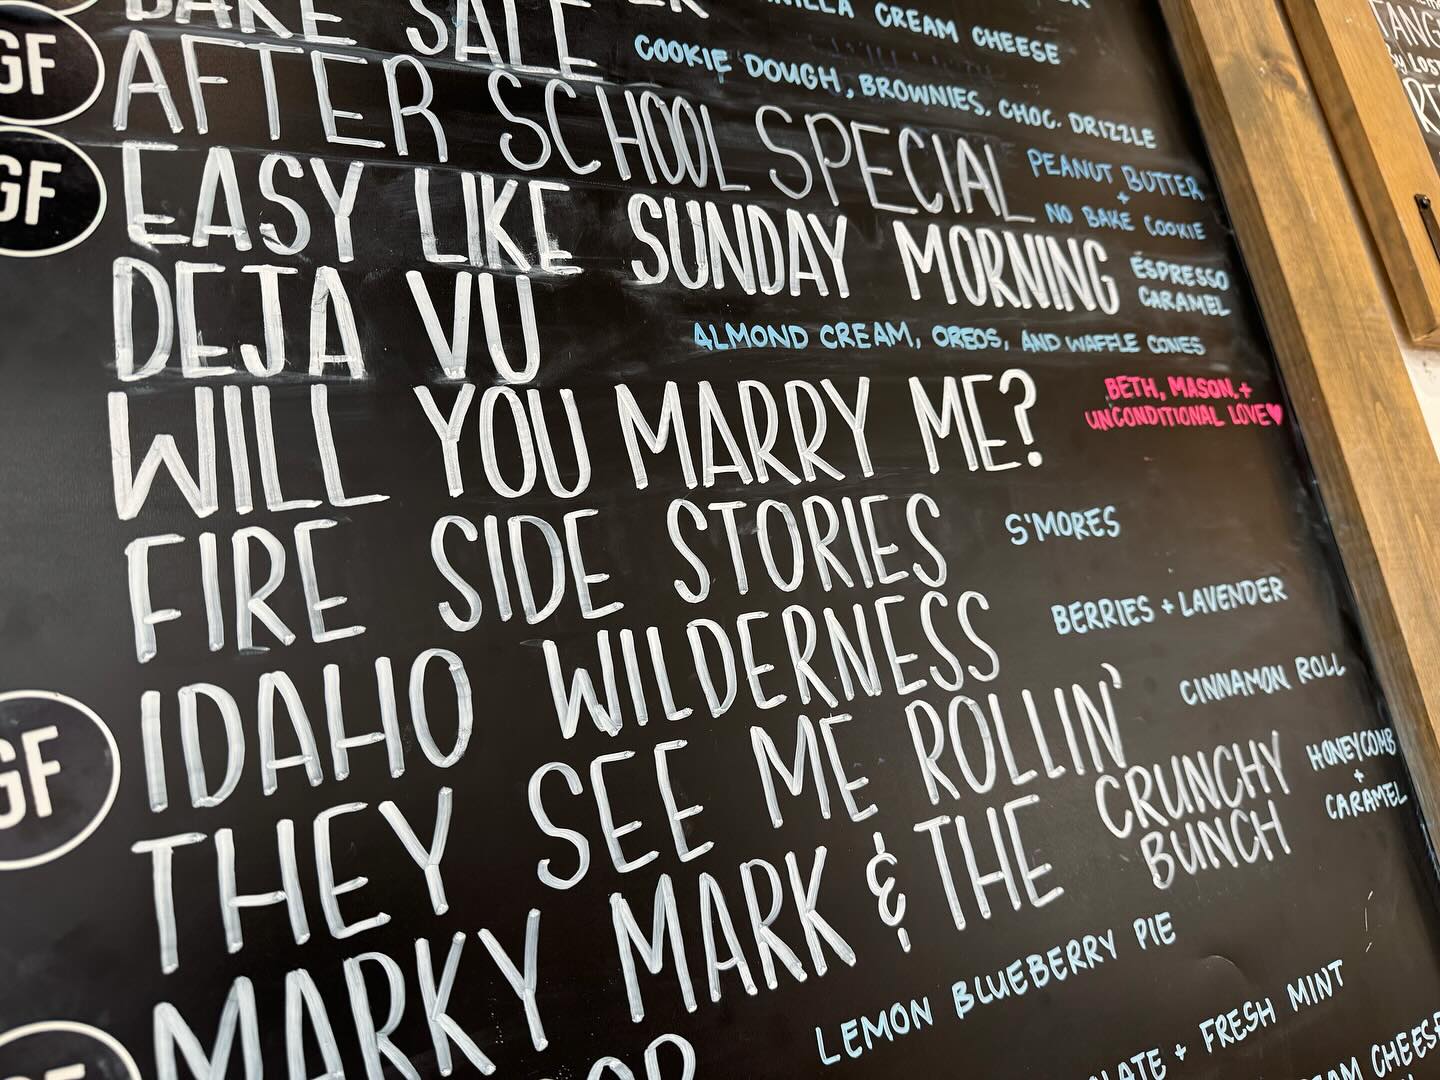 CREAM CHEESE
BAKE SALE
COOKIE DOUGH, BROWNIES, CHOC. DRIZZLE
GF AFTER SCHOOL SPECIAL
PEANUT BUTTER
+
NO BAKE COOKIE
GF EASY LIKE SUNDAY MORNING
ESPRESSO
CARAMEL
DEJA VU
ALMOND CREAM, OREOS, AND WAFFLE CONES
WILL YOU MARRY ME?
BETH, MASON, +
UNCONDITIONAL LOVE♥
FIRE SIDE STORIES
S'MORES
IDAHO WILDERNESS
BERRIES + LAVENDER
GF
THEY SEE ME ROLLIN'
CINNAMON ROLL
MARKY MARK & THE CRUNCHY
BUNCH
HONEYCOMB
+
CARAMEL
LEMON BLUEBERRY PIE
+ FRESH MINT
CHEESE